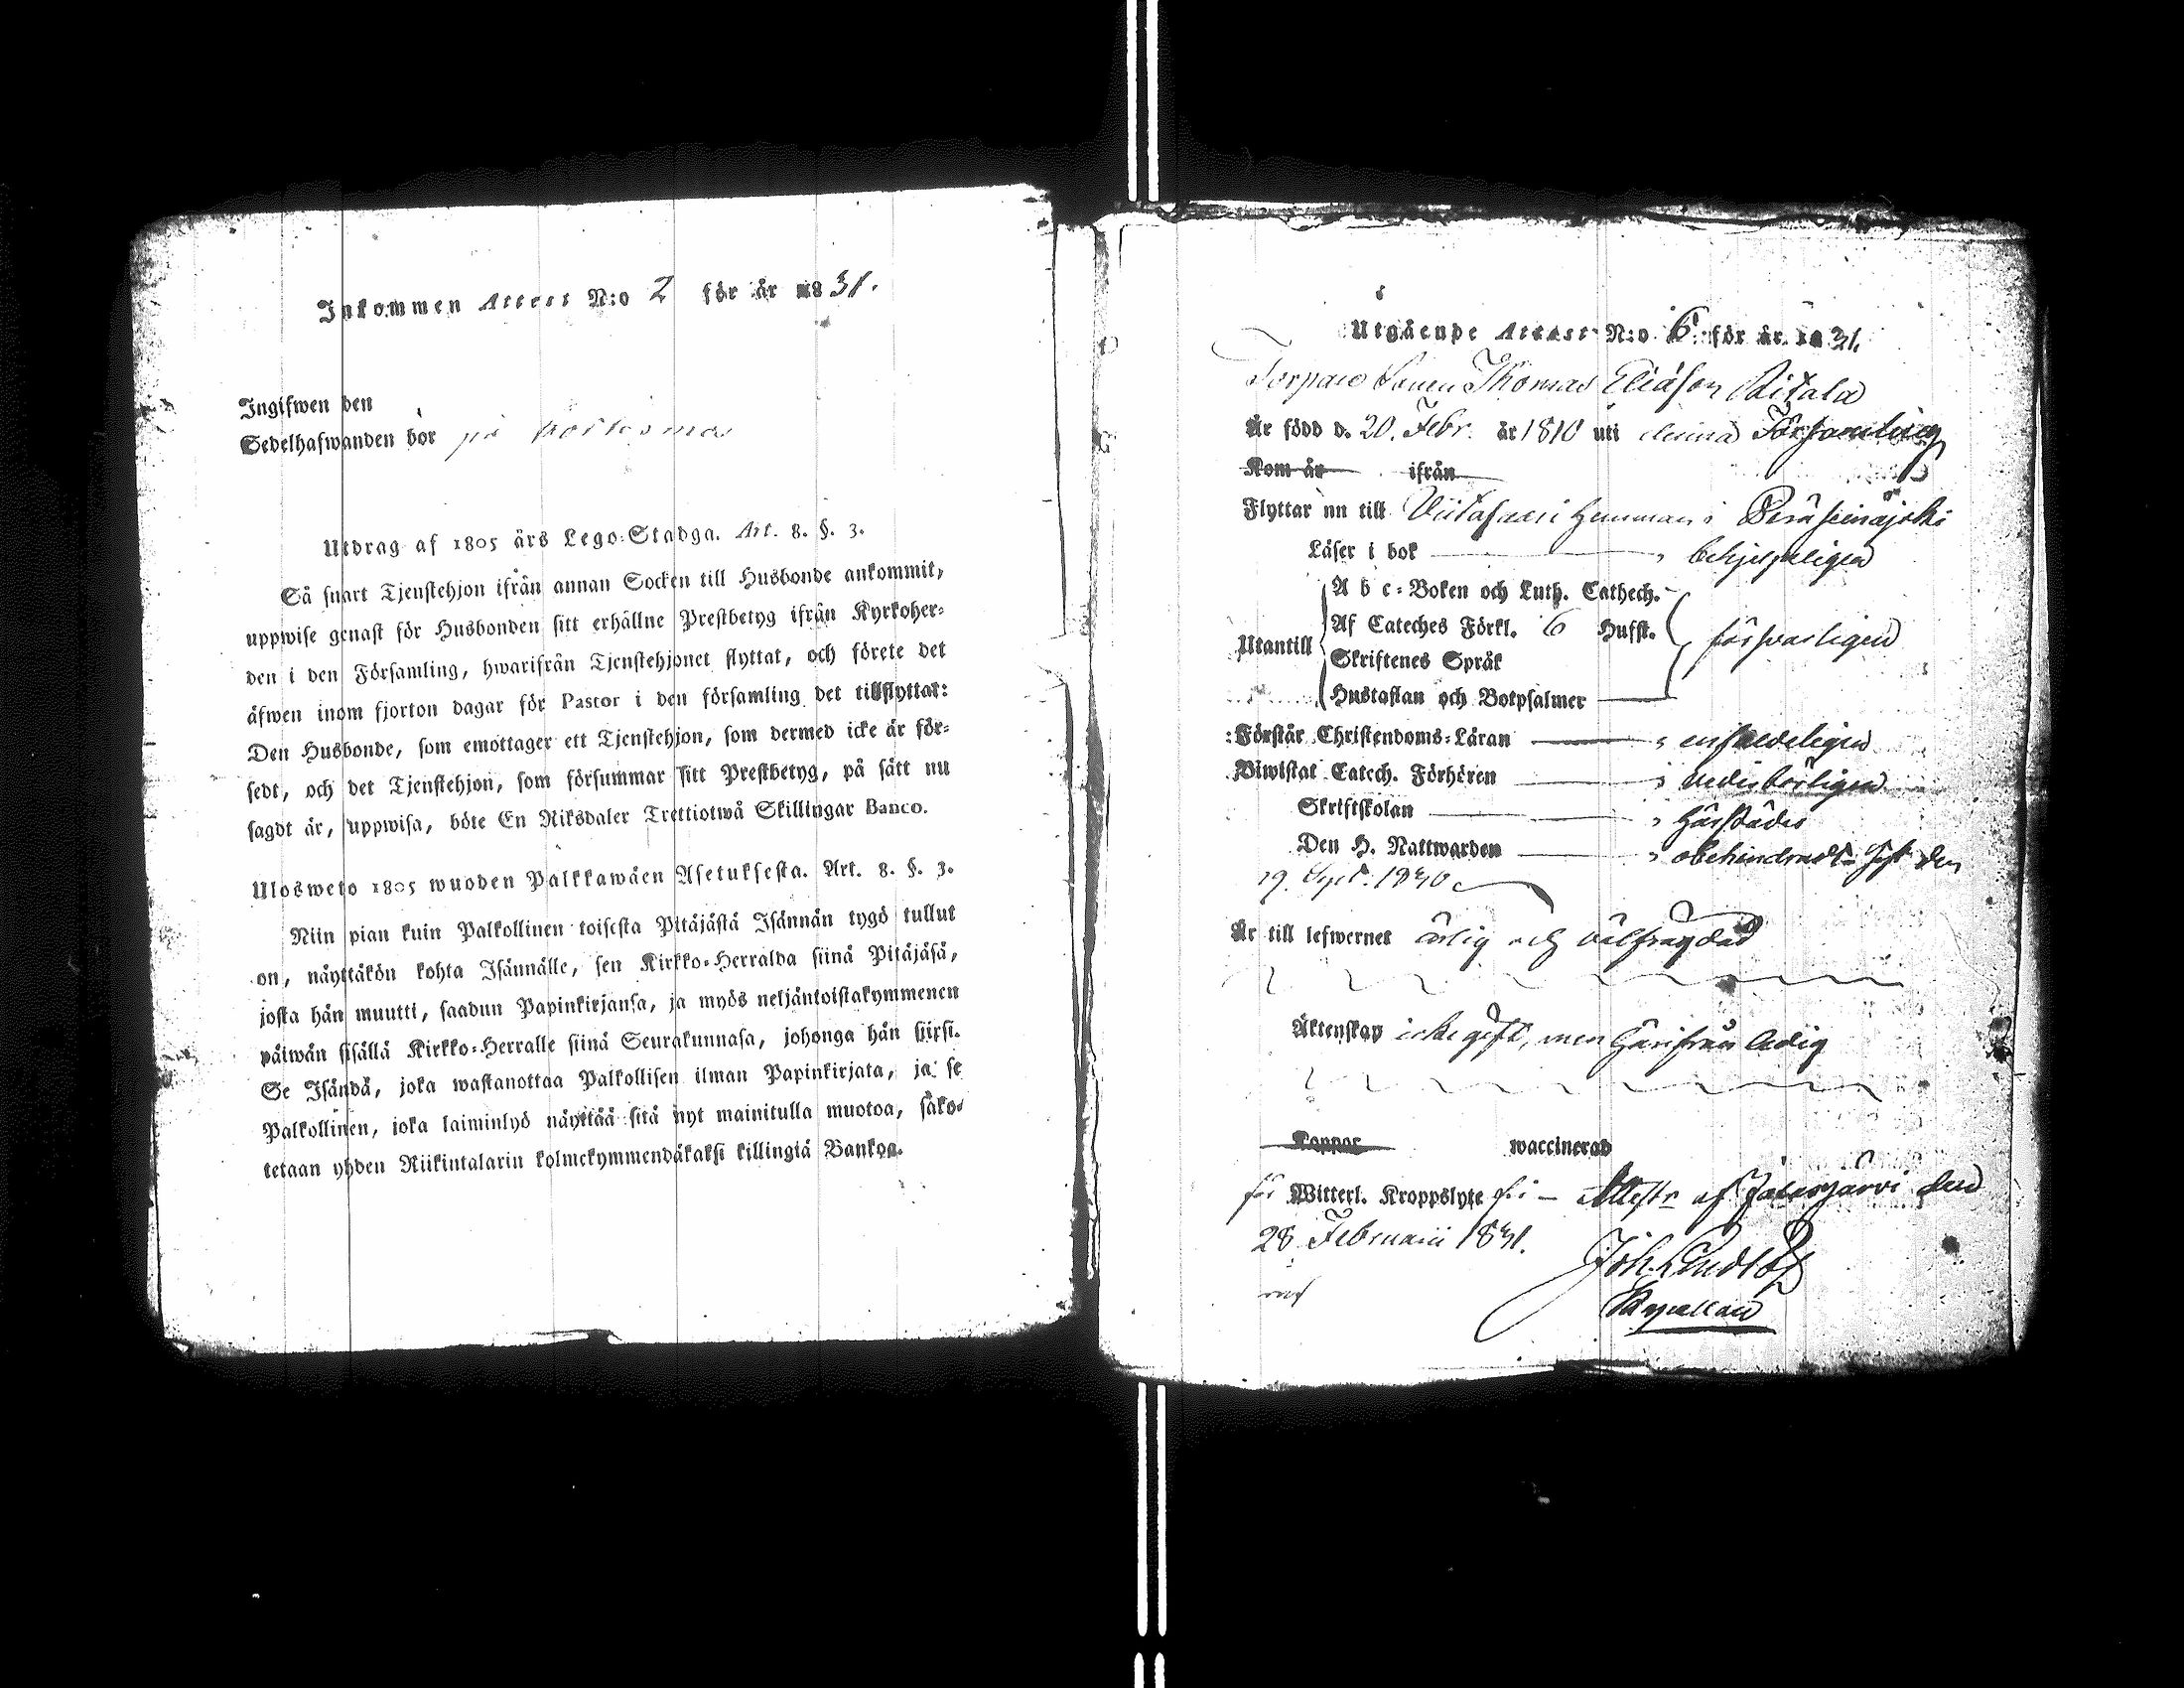 Inkommen Attest N:o 2 för år 1831.
Ingifwen den
Sedelhafwanden bor på
Utdrag af 1805 års Lego-Stadga. Art. 8. §. 3.
Så snart Tjenstehjon ifrån annan Socken till Husbonde ankommit,
uppwise genast för Husbonden sitt erhållne Prestbetyg ifrån Kyrkoher-
den i den Församling, hwarifrån Tjenstehjonet flyttat, och förete det
äfwen inom fjorton dagar för Pastor i den församling det tillflyttat:
Den Husbonde, som emottager ett Tjenstehjon, som dermed icke är för-
sedt, och det Tjenstehjon, som försummar sitt Prestbetyg, på sätt nu
sagdt är, uppwisa, böte En Riksdaler Trettiotwå Skillingar Banco.
Ulosweto 1805 wuoden Palkkawäen Asetuksesta. Art. 8. §. 3.
Niin pian kuin Palkollinen toisesta Pitäjästä Isännän tygö tullut
on, näyttäkön kohta Isännälle, sen Kirkko-Herralda siinä Pitäjäsä,
josta hän muutti, saadun Papinkirjansa, ja myös neljäntoistakymmenen
päiwän sisällä Kirkko-Herralle siinä Seurakunnasa, johonga hän siirsi.
Se Isändä, joka wastanottaa Palkollisen ilman Papinkirjata, ja se
Palkollinen, joka laiminlyö näyttää sitä nyt mainitulla muotoa, säko-
tetaan yhden Riikintalarin kolmekymmendäkaksi killingiä Bankoa.
Utgående Attest N:o 6 för år 1831.
Torpare Sonen Thomas Eliasson
Är född d. 20. Febr. år 1810 uti denna Församling
Kom år ifrån
Flyttar nu till Hemman i Peräseinäjoki
Läser i bok behjelpeligen
A b c-Boken och Luth. Cathech.
Af Cateches Förkl. 6 Hufst.
Utantill försvarligen
Skriftenes Språk
Hustaflan och Botpsalmer
Förstår Christendoms-Läran enfaldeligen
Biwistat Catech. Förhören vederbörligen
Skriftskolan härstädes
Den H. Nattwarden obehindradt sist den
19. Sept. 1830
Är till lefwernet ärlig och välfrägdad
Äktenskap icke gift, men härifrån ledig
Koppor waccinerad
för Witterl. Kroppslyte fri - Attestr af Jalasjärvi den
28 Februarii 1831.
Joh.
Kapellan